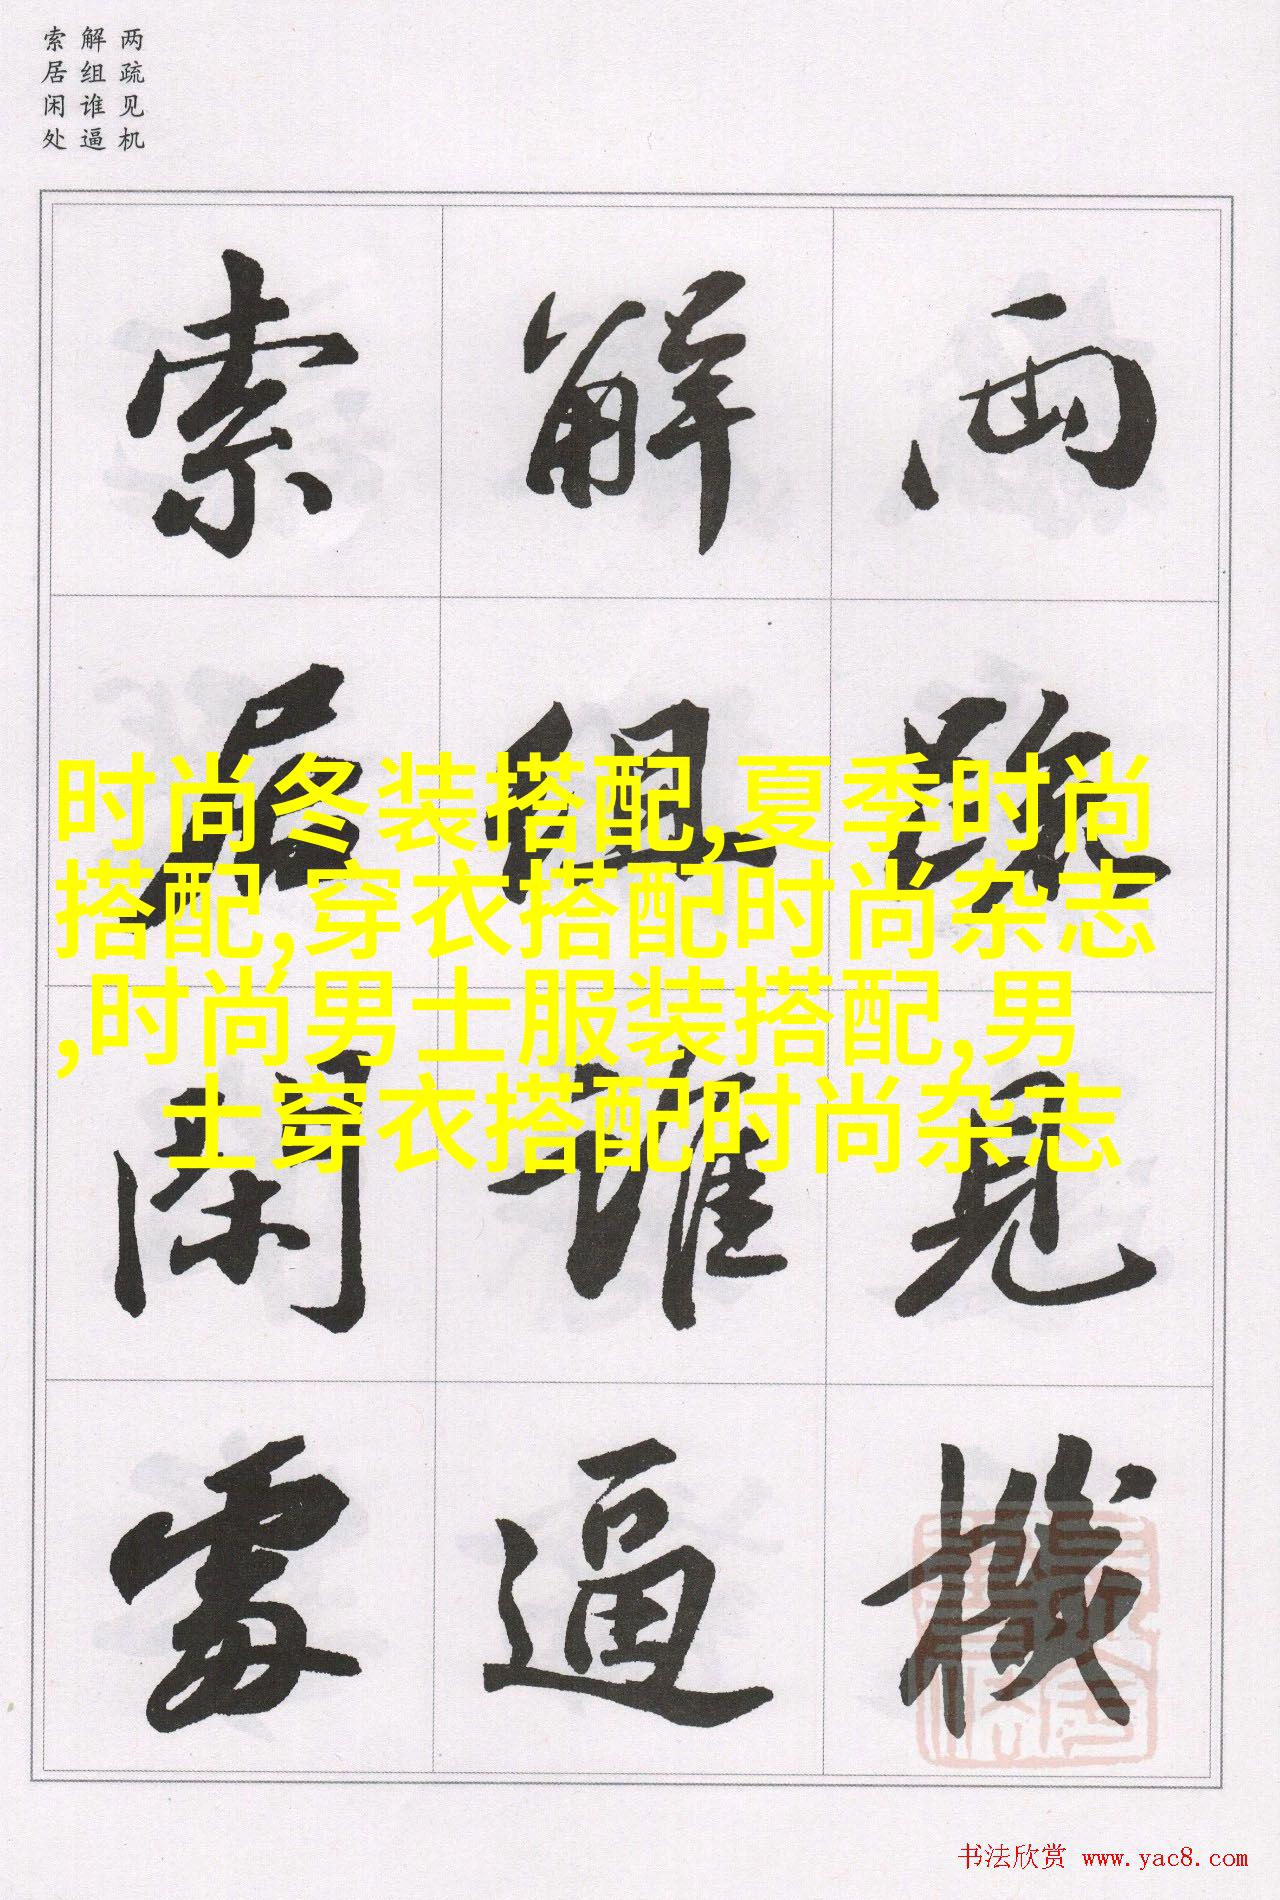 两疏见机
解组谁逼
索居闲处
兩疏見機
解組誰逼
索居閑處
时尚冬装搭配,夏季时尚
搭配,穿衣搭配时尚杂志
,时尚男士服装搭配,男
士穿衣搭配时尚杂志
书法欣赏 www.yac8.com